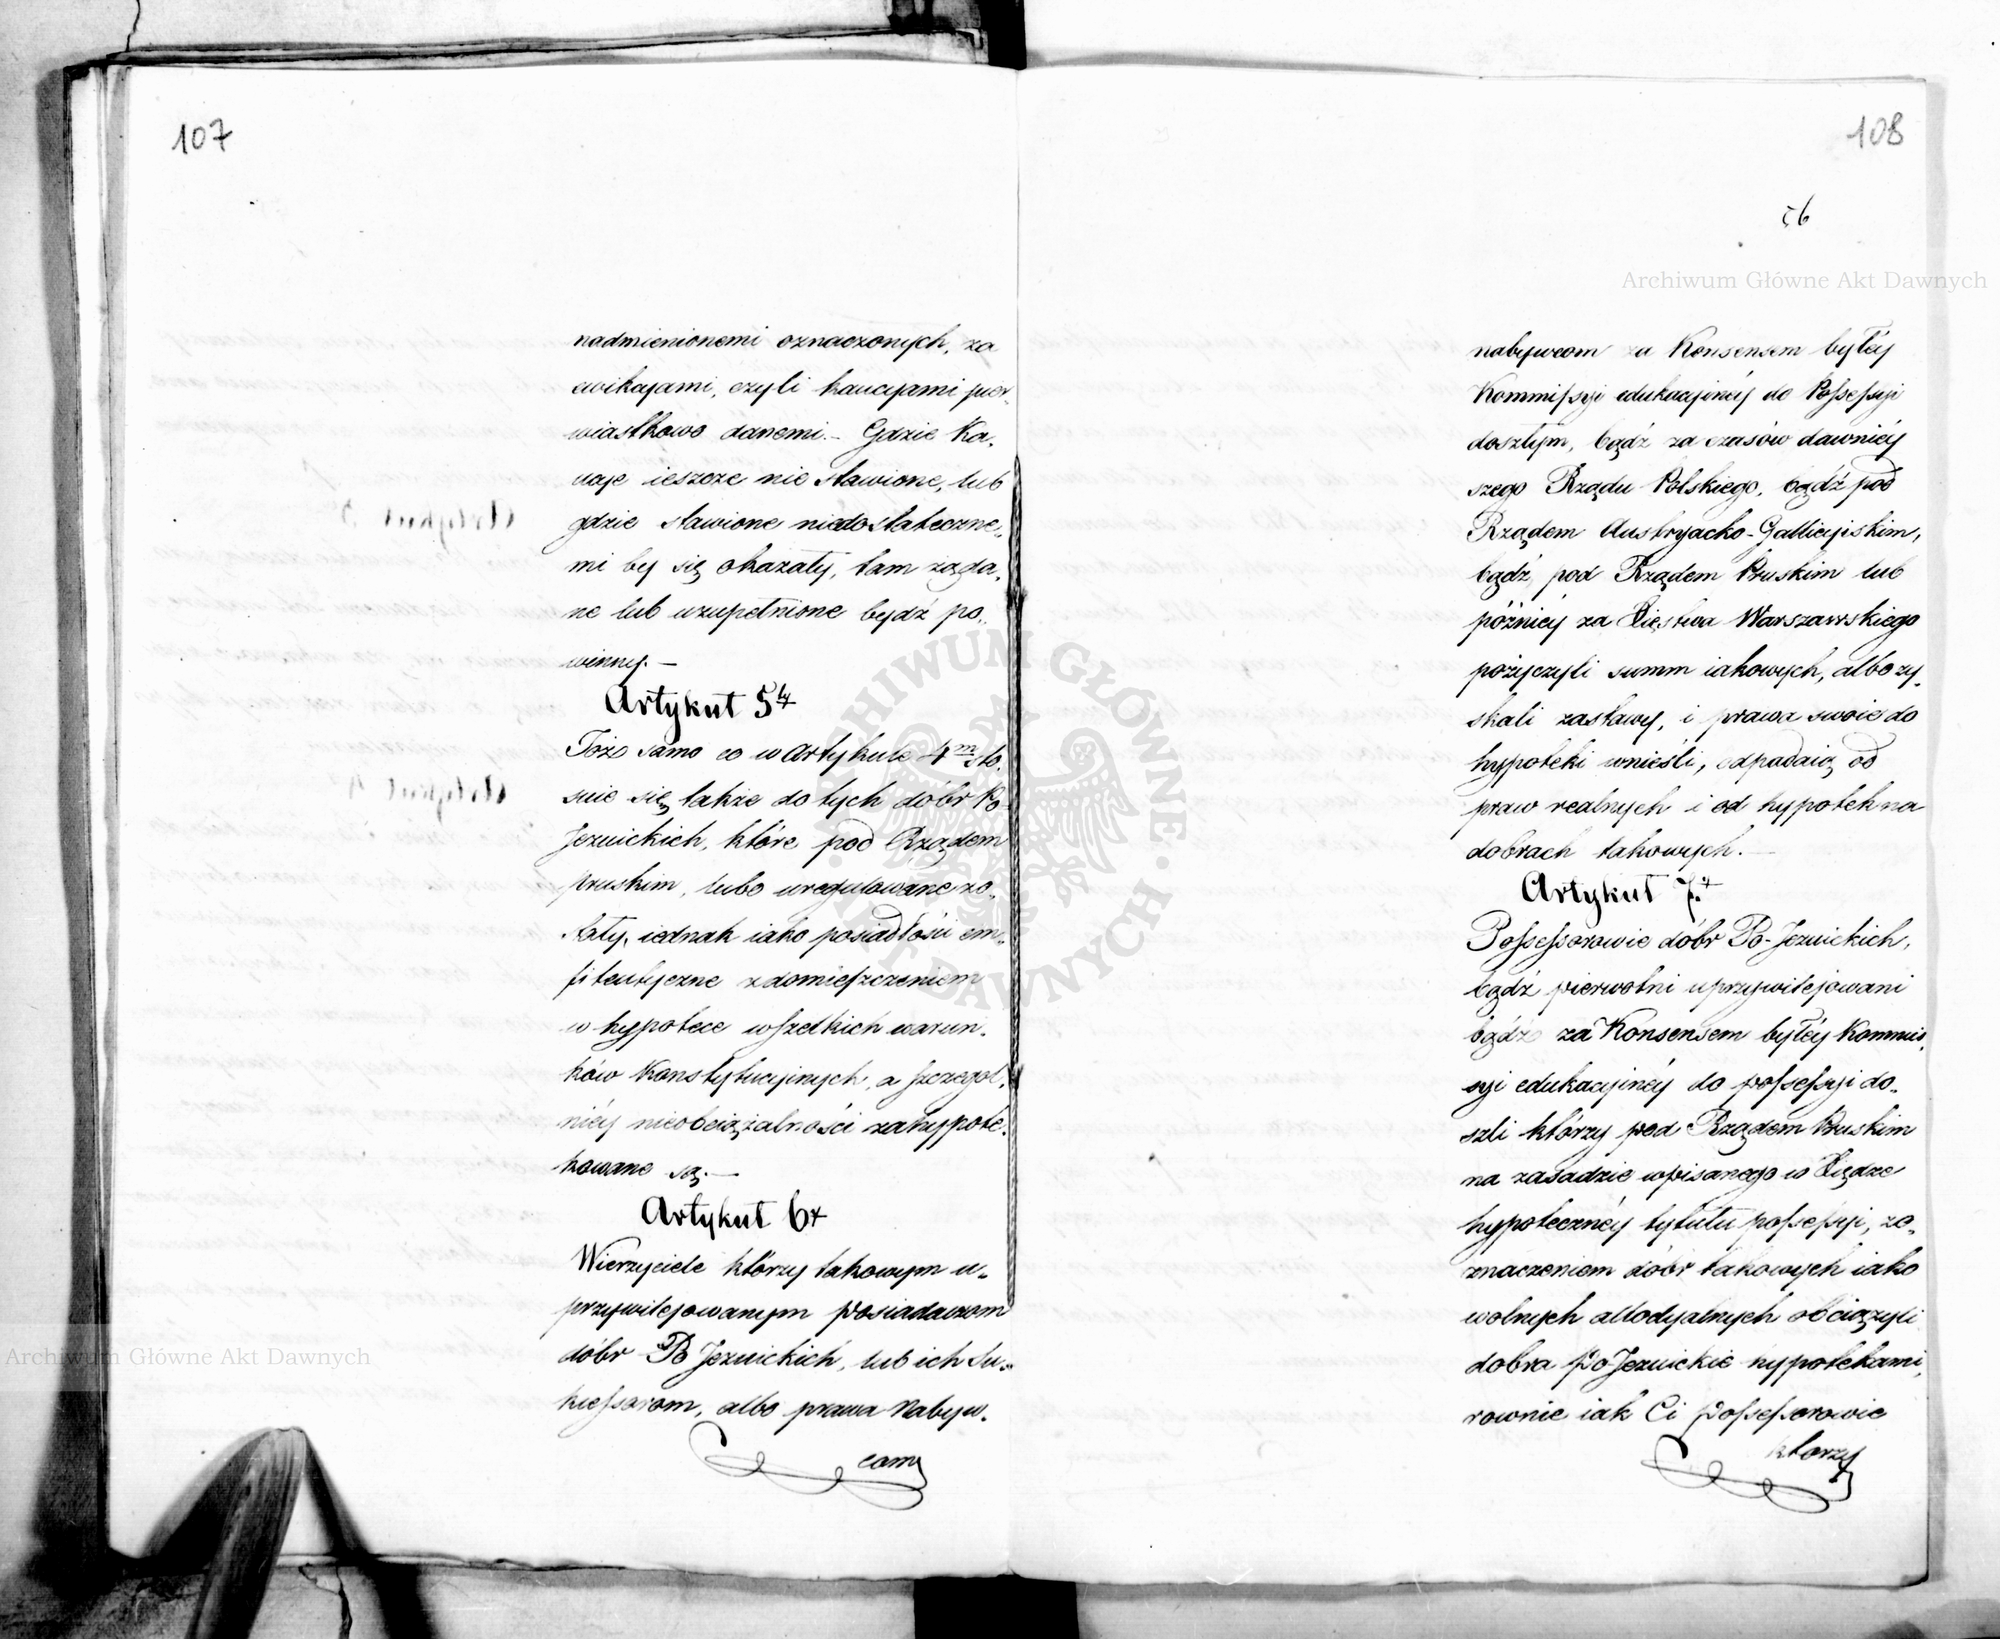 107
nadmienionemi oznaczonych, za
ewikcyami, czyli kaucyami pier-
wiastkowo danemi. - Gdzie Ka-
ucye ieszcze nie stawione, lub
gdzie stawione niedostateczne-
mi by się okazały, tam żąda-
ne lub uzupełnione bydź po-
winny. -
Artykuł 5ty
Toż samo co w Artykule 4m sto-
suie się także do tych dóbr Po-
Jezuickich, które pod Rządem
pruskim, lubo uregulowane zo-
stały, iednak iako posiadłości em-
fiteutyczne z domieszczeniem
w hypotece wszelkich warun-
ków Konstytucyinych, a szczegol-
niéy nieobciążalności zahypote-
kowane są. -
Artykuł 6ty
Wierzyciele którzy takowym u-
przywilejowanym posiadaczom
dóbr Po Jezuickich, lub ich Su-
kcessorom, albo prawa Nabyw-
com
108
56
nabywcom za Konsensem byłéy
Kommissyi edukacyinéy do Possessyi
doszłym, bądź za czasów dawniéy
szego Rządu Polskiego, bądź pod
Rządem Austryacko-Gallicyiskim,
bądź pod Rządem Pruskim lub
późniéy za Xięstwa Warszawskiego
pożyczyli summ iakowych, albo zy-
skali zastawy, i prawa swoie do
hypoteki wnieśli, odpadaią od
praw realnych i od hypotek na
dobrach takowych. -
Artykuł 7y
Possessorowie dóbr Po-Jezuickich,
bądź pierwotni uprzywilejowani
bądź za Konsensem byłéy Kommis-
syi edukacyinéy do possessyi do-
szli którzy pod Rządem Pruskim
na zasadzie wpisanego w Xiędze
hypotecznéy tytułu possessyi, zo-
znaczeniem dóbr takowych iako
wolnych allodyalnych obciążyli
dobra Po-Jezuickie hypotekami,
rownie iak Ci Possessorowie
ktorzy
Archiwum Główne Akt Dawnych
Archiwum Główne Akt Dawnych
ARCHIWUM GŁÓWNE AKT DAWNYCH